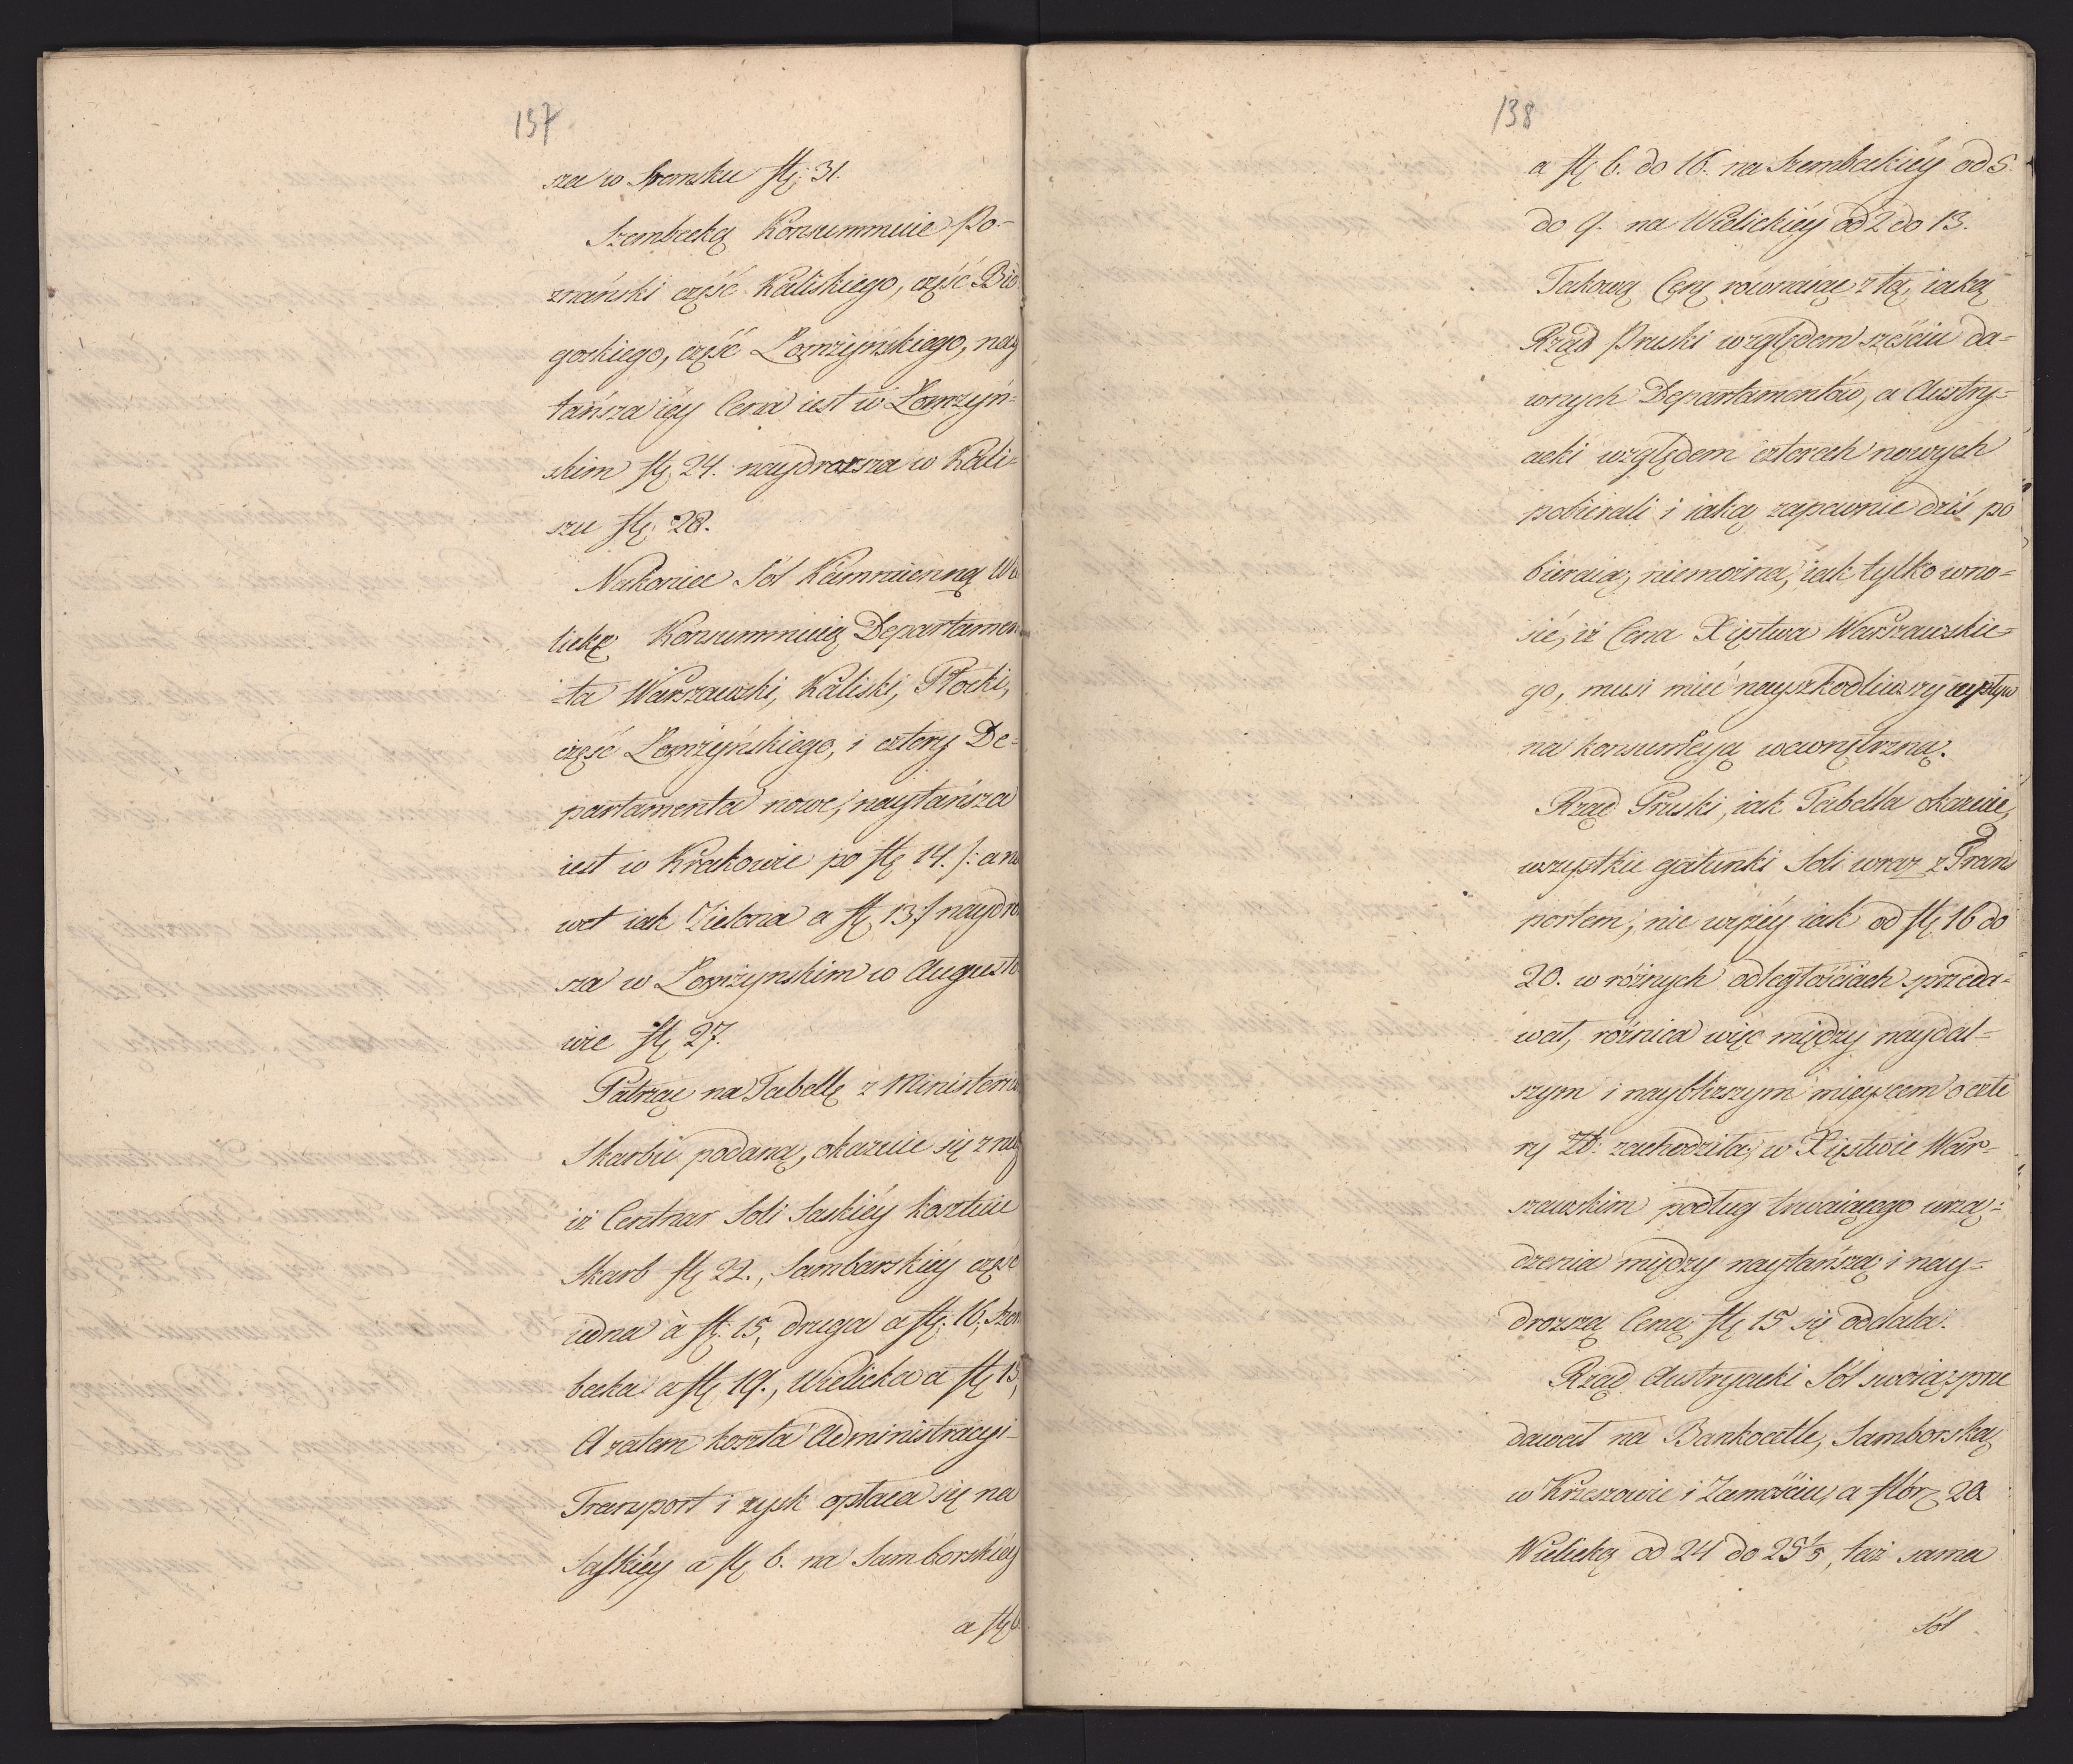 137
sza w Sremsku fl. 31.
Szembecką Konsummuie Po-
znański część Kaliskiego, część Bid
goskiego, część Łomżyńskiego, nay
tańsza iéy Cena iest w Łomżyń=
skim fl. 24. naydrozsza w Kali=
szu fl. 28.
Nakoniec Sól Kammienną Wie
licką Konsummuią Departamen
=ta Warszawski, Kaliski, Płocki,
część Łomżyńskiego, i cztery De=
partamenta nowe, naytańsza
iest w Krakowie po fl. 14. /: a na
wet iak Zielona a fl. 13 :/ naydro
sza w Łomżynskim w Augusto
wie fl. 27.
Patrząc na Tabellę z Ministerium
Skarbu podaną, okazuie się z niey
iż Centnar Soli Saskiéy kosztuie
Skarb fl. 22., Samborskiéy część
iedna à fl. 15, druga a fl. 16, Szem
becka a fl. 19., Wielicka a fl. 13,
A zatem koszta Administracyi
Transport i zysk opłaca się na
Saskiéy a fl. 6. na Samborskiéy
a fl. 6.
138
a fl. 6. do 16. na Szembeckiéy od 5.
do 9. na Wielickiéy od 2 do 13.
Takową Cenę równaiąc z tą, iaką
Rząd Pruski względem sześciu da=
wnych Departamentów, a Austry=
acki względem czterech nowych
pobierali i iaką zapewnie dziś po
bieraią, niemożna, iak tylko wno=
sić, iż Cena Xięstwa Warszawskie=
go, musi mieć nayszkodliwszy wpływ
na konsumcyą wewnętrzną.
Rząd Pruski, iak Tabella okazuie,
wszystkie gatunki Soli wraz z Trans
portem, nie wyżéy iak od fl. 16 do
20. w różnych odległościach przeda=
wał, różnica więc między naydal=
szym i naybliższym mieyscem o czte
ry Zł: zachodziła, w Xięstwie War=
szawskim podług trwaiącego urzą=
dzenia między naytańszą i nay=
drozszą Ceną fl. 15 się oddala.
Rząd Austryacki Sól swoią prze
dawał na Bankocetle, Samborską
w Krzeszowie i Zamościu, a flór. 20.
Wielicką od 24 do 25 1/5, taż sama
Sól